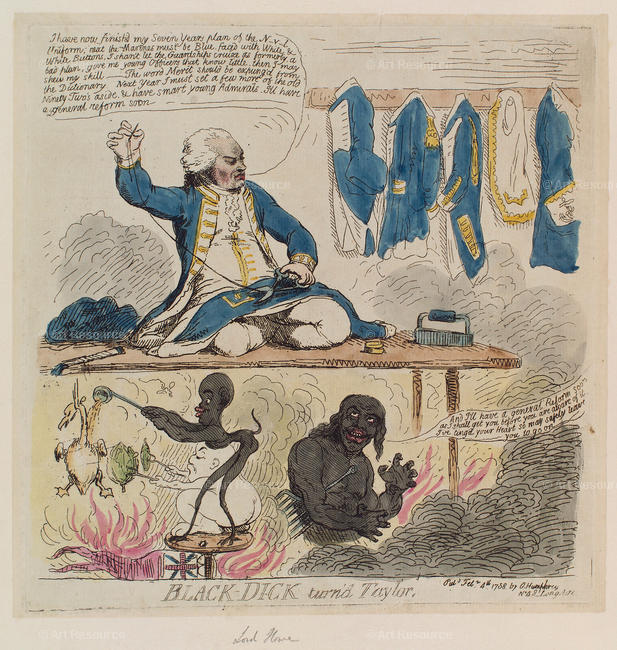 I have now finish'd my Seven Years plan of the N-v-l
Uniform, next the Marines must be Blue faced with White &
White Buttons, I shan't let the Guardships cruize as formerly, a
bad plan, give me young Officers that know little, then I may
shew my skill — The word Merit should be expung'd from
the Dictionary Next Year I must set a few more of the old
Ninety Two's aside, & have smart young Admirals. I'll have
a general reform soon
And I'll have a general Reform soon
as I shall get you before you are aware of it
I've ting'd your Heart so may safely leave
you to go on
BLACK-DICK turn'd Taylor.
Pub.d Feb.y 4th 1788 by G. Humphrey
No 48 Long Acre
Lord Howe
© Art Resource
© Art Resource
© Art Resource
© Art Resource
© Art Resource
© Art Resource
© Art Resource
© Art Resource